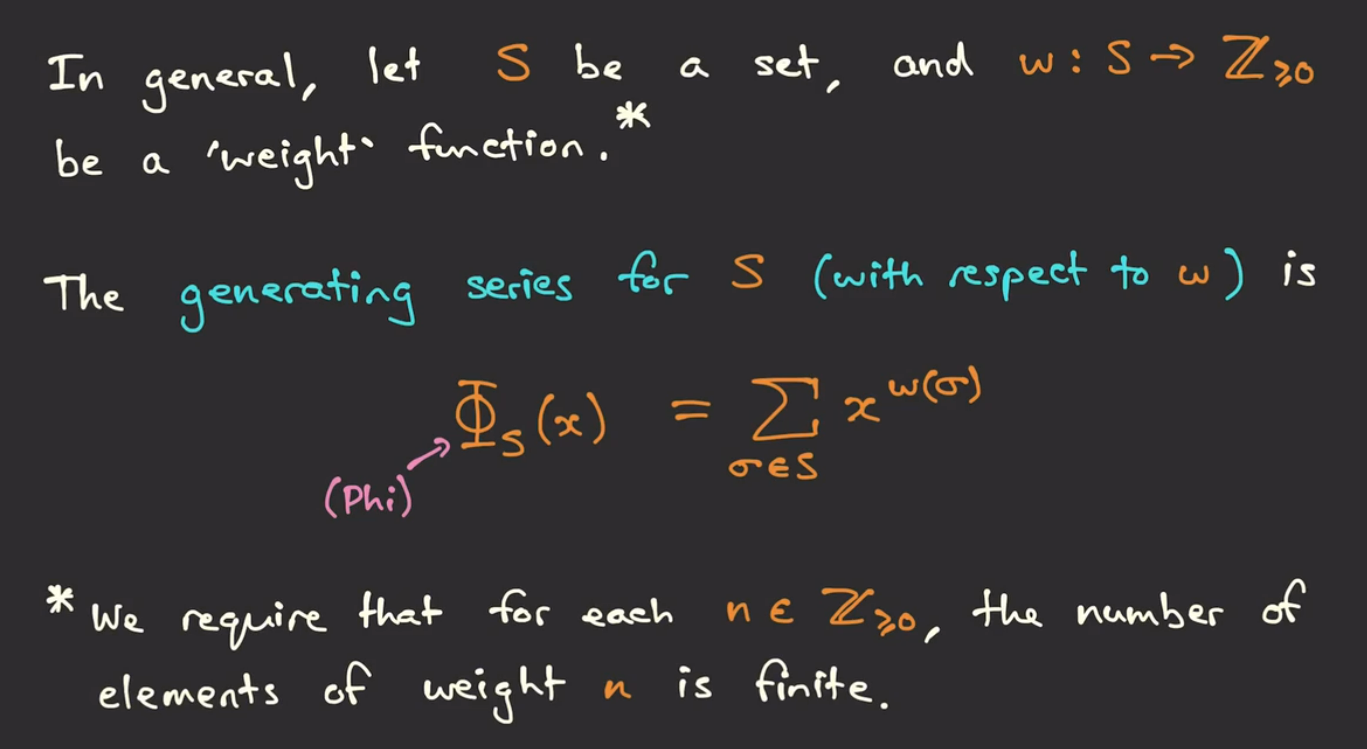 In general, let S be a set, and w : S → ℤ≥0
be a 'weight' function.*
The generating series for S (with respect to w) is
Φ_S(x) = Σ_{σ∈S} x^{w(σ)}
(Phi)
* We require that for each n ∈ ℤ≥0, the number of
elements of weight n is finite.